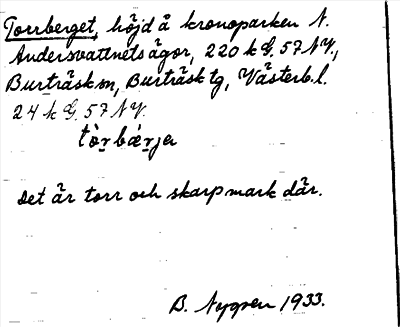 Torrberget, höjd å kronoparken N.
Andersvattnets ägor, 220 k G. 57 NV.,
Burträsk sn, Burträsk tg, Västerb. l.
24 k G. 57 NV.
tòr̲bǽr̲jer
Det är torr och skarp mark där.
B. Nygren 1933.